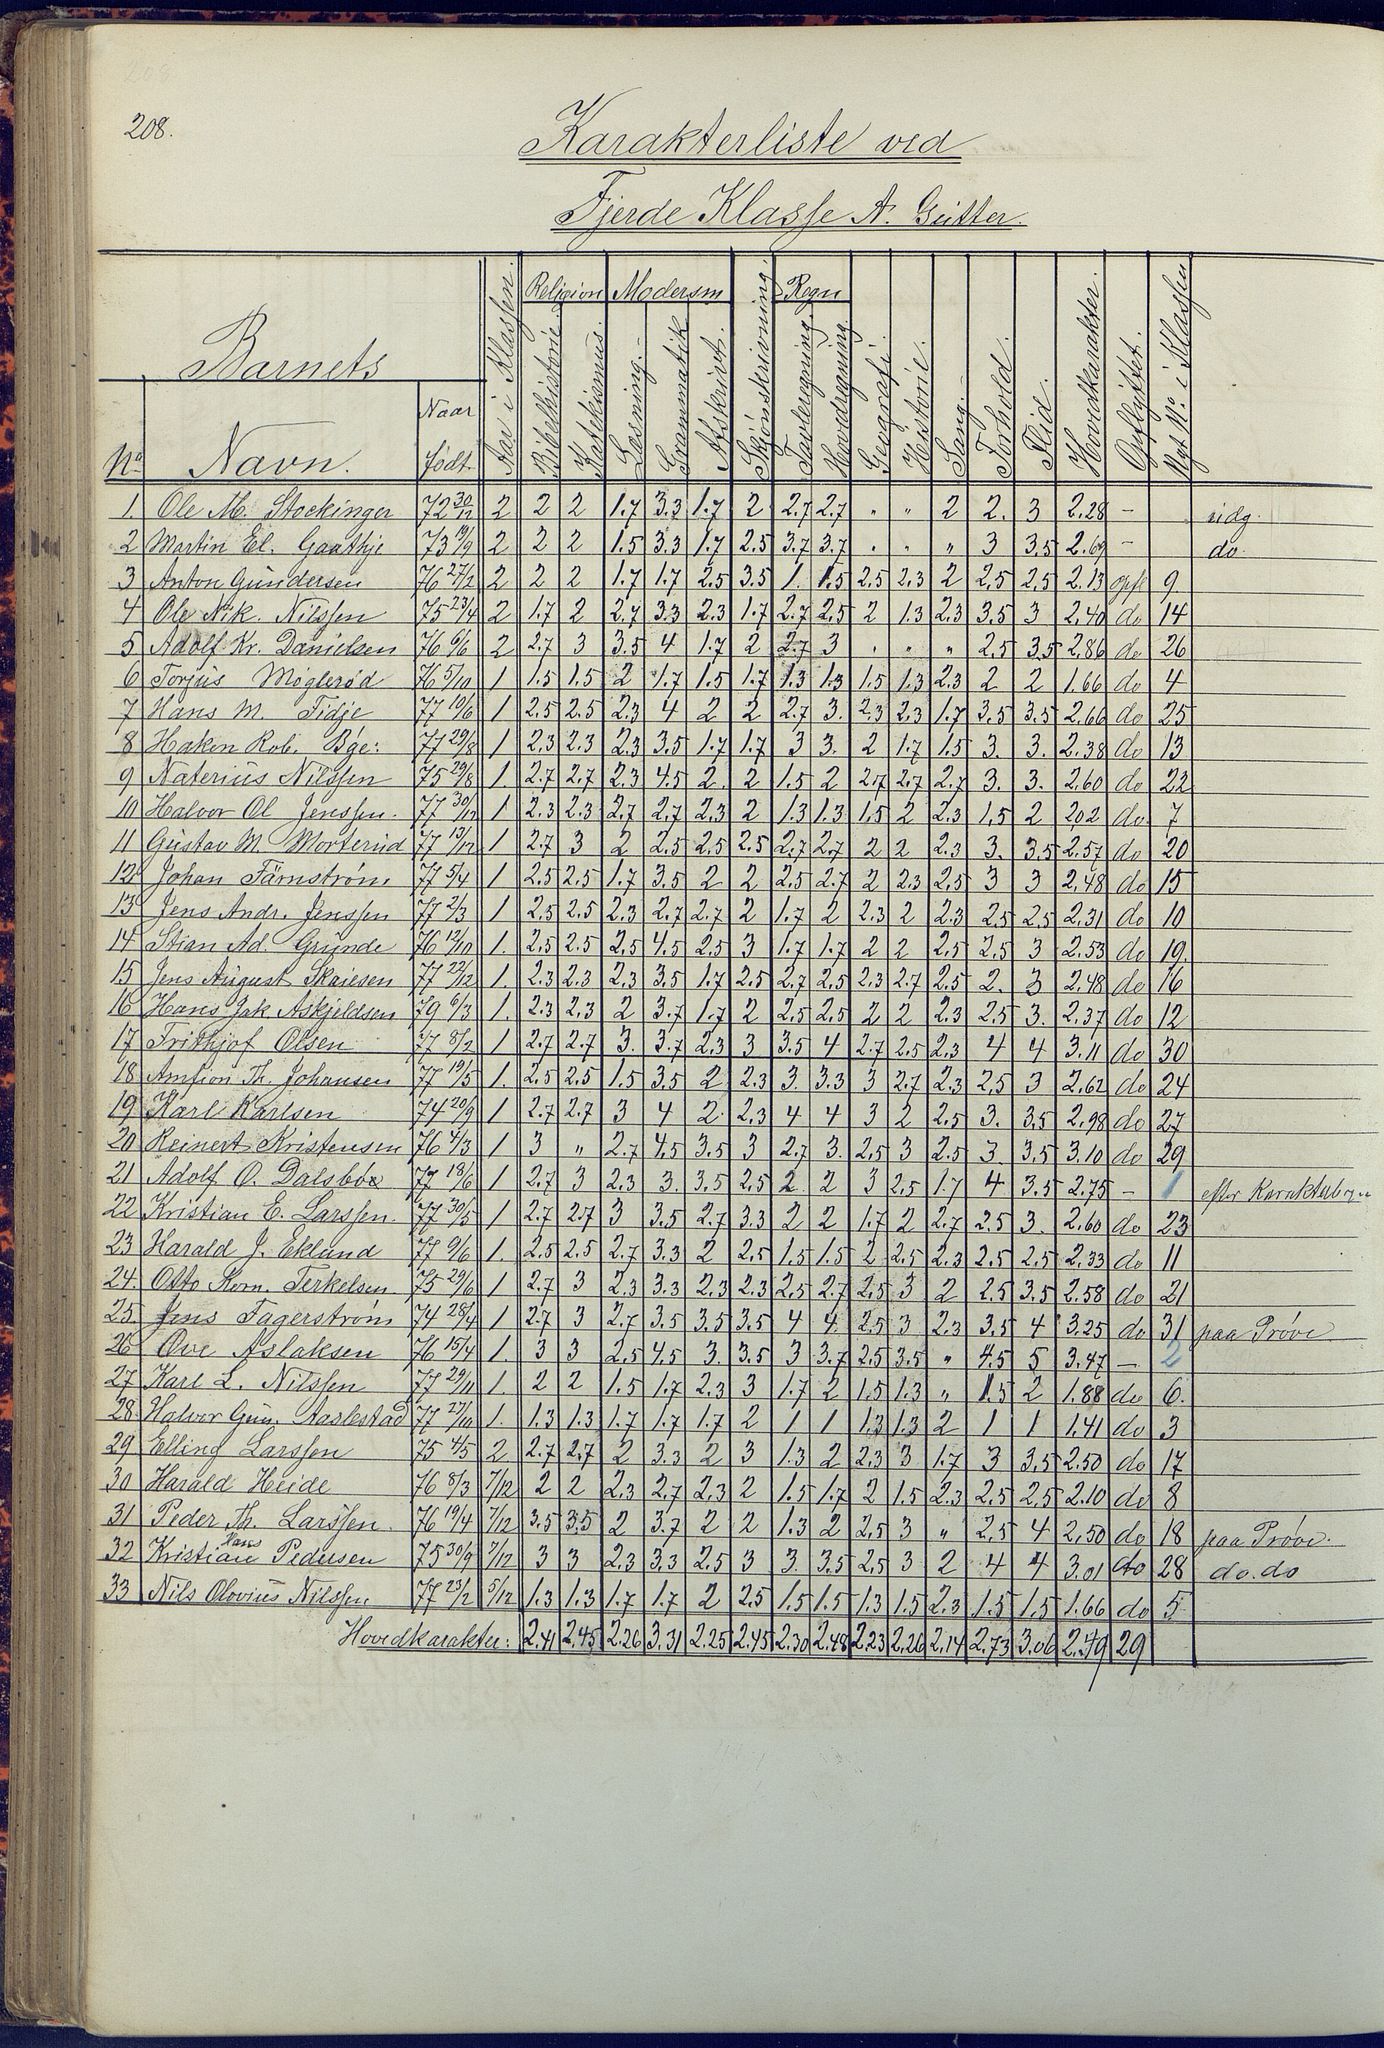 208.
Karakterliste ved
Fjerde Klasse A. Gutter.
Barnets
No Navn. Naar født. Aar i Klassen. Religion Bibelhistorie. Katekismus. Modersm Læsning. Grammatik Afskrivt. Skjønskrivning. Regn Tavleregning. Hovedregning. Geografi. Historie. Sang. Forhold. Flid. Hovedkarakter. Opflyttet. Nyt No. i Klassen
1 Ole M. Stockinger 72 30/12 2 2 2 1.7 3.3 1.7 2 2.7 2.7 " " 2 2. 3 2.28 – udg.
2 Martin El. Gaathje 73 19/9 2 2 2 1.5 3.3 1.7 2.5 3.7 3.7 " " " 3 3.5 2.69 – do.
3 Anton Gundersen 76 27/2 2 2 2 1.7 1.7 2.5 3.5 1. 1.5 2.5 2.3 2 2.5 2.5 2.13 opfl 9
4 Ole Nik. Nilssen 75 23/4 2 1.7 2 2.7 3.3 2.3 1.7 2.7 2.5 2 1.3 2.3 3.5 3 2.40 do 14
5 Adolf Kr. Danielsen 76 6/6 2 2.7 3 3.5 4 1.7 2 2.7 3 " " " 2.5 3.5 2.86 do 26
6 Torjus Møglerød 76 5/10 1 1.5 1.5 2 1.7 1.5 1.7 1.3 1.3 1.5 1.3 2.3 2 2 1.66 do 4
7 Hans M. Fidje 77 10/6 1 2.5 2.5 2.3 4 2 2 2.7 3. 2.3 2.3 1.7 3.5 3.5 2.66 do 25
8 Haken Rob. Bøe: 77 29/8 1 2.3 2.3 2.3 3.5 1.7 1.7 3 3. 2 1.7 1.5 3. 3. 2.38 do 13
9 Naterius Nilssen 75 29/8 1. 2.7 2.7 2.3 4.5 2. 2 1.5 2 2.7 2.7 2.7 3. 3. 2.60 do 22
10 Halvor Ol Jenssen. 77 30/12 1 2.3 2.3 2.7 2.7 2.3 2 1.3 1.3 1.5 2 2.3 1.5 2 2.02 do. 7
11 Gustav M Morterud 77 13/12 1 2.7 3 2 2.5 2.5 2.5 2.7 2.7 2 2 2.3 3. 3.5 2.57 do 20
12 Johan Färnstrøm 77 5/4 1 2.5 2.5 1.7 3.5 2 2 2.5 2.7 2 2.3 2.5 3 3 2.48 do 15
13 Jens Andr. Jenssen 77 2/3 1 2.5 2.5 2.3 2.7 2.7 2 1.7 2 2.3 2 2.3 2.5 2.5 2.31 do 10
14 Stian Ad. Grunde 76 12/10 1. 2.5 2.5 2.5 4.5 2.5 3 1.7 1.7 2 2 2.5 2.5 3 2.53 do 19.
15 Jens August Skaiesen 77 22/12 1. 2.3 2.3 2.3 3.5 1.7 2.5 2.7 2.5 2.3 2.7 2.5 2. 3 2.48 do 16
16 Hans Jak. Askjeldsen 79 6/3 1. 2.3 2.3 2 3.7 1.7 2 2.5 2.5 2 2 2.3 2.5 3. 2.37 do 12
17 Frithjof Olsen 77 8/2 1 2.7 2.7 3. 3.7 2.3 3 3.5 4 2.7 2.5 2.3 4 4 3.11 do 30
18 Amfion Th. Johansen 77 19/5 1. 2.5 2.5 1.5 3.5 2 2.3 3. 3.3 3 2.7 2.3 2.5 3 2.62 do 24
19 Karl Karlsen 74 20/9 1 2.7 2.7 3 4 2. 2.3 4 4 3 2 2.5 3. 3.5 2.98 do 27
20 Reinert Kristensen 76 4/3 1 3 " 2.7 4.5 3.5 3 2.7 3. 2.5 3 2.5 3. 3.5 3.10 do 29
21 Adolf O. Dalsbøe 77 18/6 1 2.7 3 2.3 3. 3.5 2.5 2 2 3 2.5 1.7 4 3.5 2.75 – 1 efter Karakterbogen
22 Kristian E. Larssen. 77 30/5 1 2.7 2.7 3 3.5 2.7 3.3 2 2 1.7 2 2.7 2.5 3. 2.60 do 23
23 Harald J. Eklund 77 9/6 1. 2.5 2.5 2.7 3.3 2 2.5 1.5 1.5 2 2.5 2.3 2.5 2.5 2.33 do 11
24. Otto Korn. Terkelsen. 75 29/6 1 2.7 3 2.3 3.3 2.3 2.3 2.5 2.7 2.5 3 2 2.5 3.5 2.58 do 21
25. Jens Fagerstrøm 74 28/4 1 2.7 3 2.7 3.5 3.5 3.5 4 4. 2.5 3 2.3 3.5 4 3.25 do 31 paa Prøve
26 Ove Aslaksen 76 15/4 1. 3 3 2.5 4.5 3. 3.5 3 3.7 2.5 3.5 " 4.5 5 3.47 – 2
27 Karl L. Nilssen 77 29/11 1. 2 2 1.5 1.7 2.3 3 1.7 2 1.5 1.3 " 1.5 2 1.88 do 6.
28. Halvor Gun. Aaslestad 77 27/10 1. 1.3 1.3 1.7 1.7 1.7 2 1 1 1.3 1.3 2 1 1 1.41 do 3
29 Elling Larssen 75 4/5 2 2.7 2.7 2 3.3 2 3 1.3 2 2.3 3 1.7 3 3.5 2.50 do 17
30 Harald Heide 76 8/3 7/12 2 2 2.3 2.7 2.3 2 1.5 1.7 2 1.5 2.3 2.5 2.5 2.10 do 8
31 Peder Th. Larssen. 76 19/4 7/12 3.5 3.5 2 3.7 2 2 1.3 2 2.5 3 " 2.5 4 2.50 do 18 paa Prøve.
32 Kristian Hans Pedersen 75 30/9 7/12 3 3 2.3 3.3 2.5 3 3. 3.5 2.5 3 2 4 4 3.01 do 28 do. do
33 Nils Olovius Nilssen 77 23/2 5/12 1.3 1.3 1.7 1.7 2 2.5 1.5 1.5 1.3 1.5 2.3 1.5 1.5 1.66 do 5
Hovedkarakter: 2.41 2.45 2.26 3.31 2.25 2.45 2.30 2.48 2.23 2.26 2.14 2.73 3.06 2.49 29